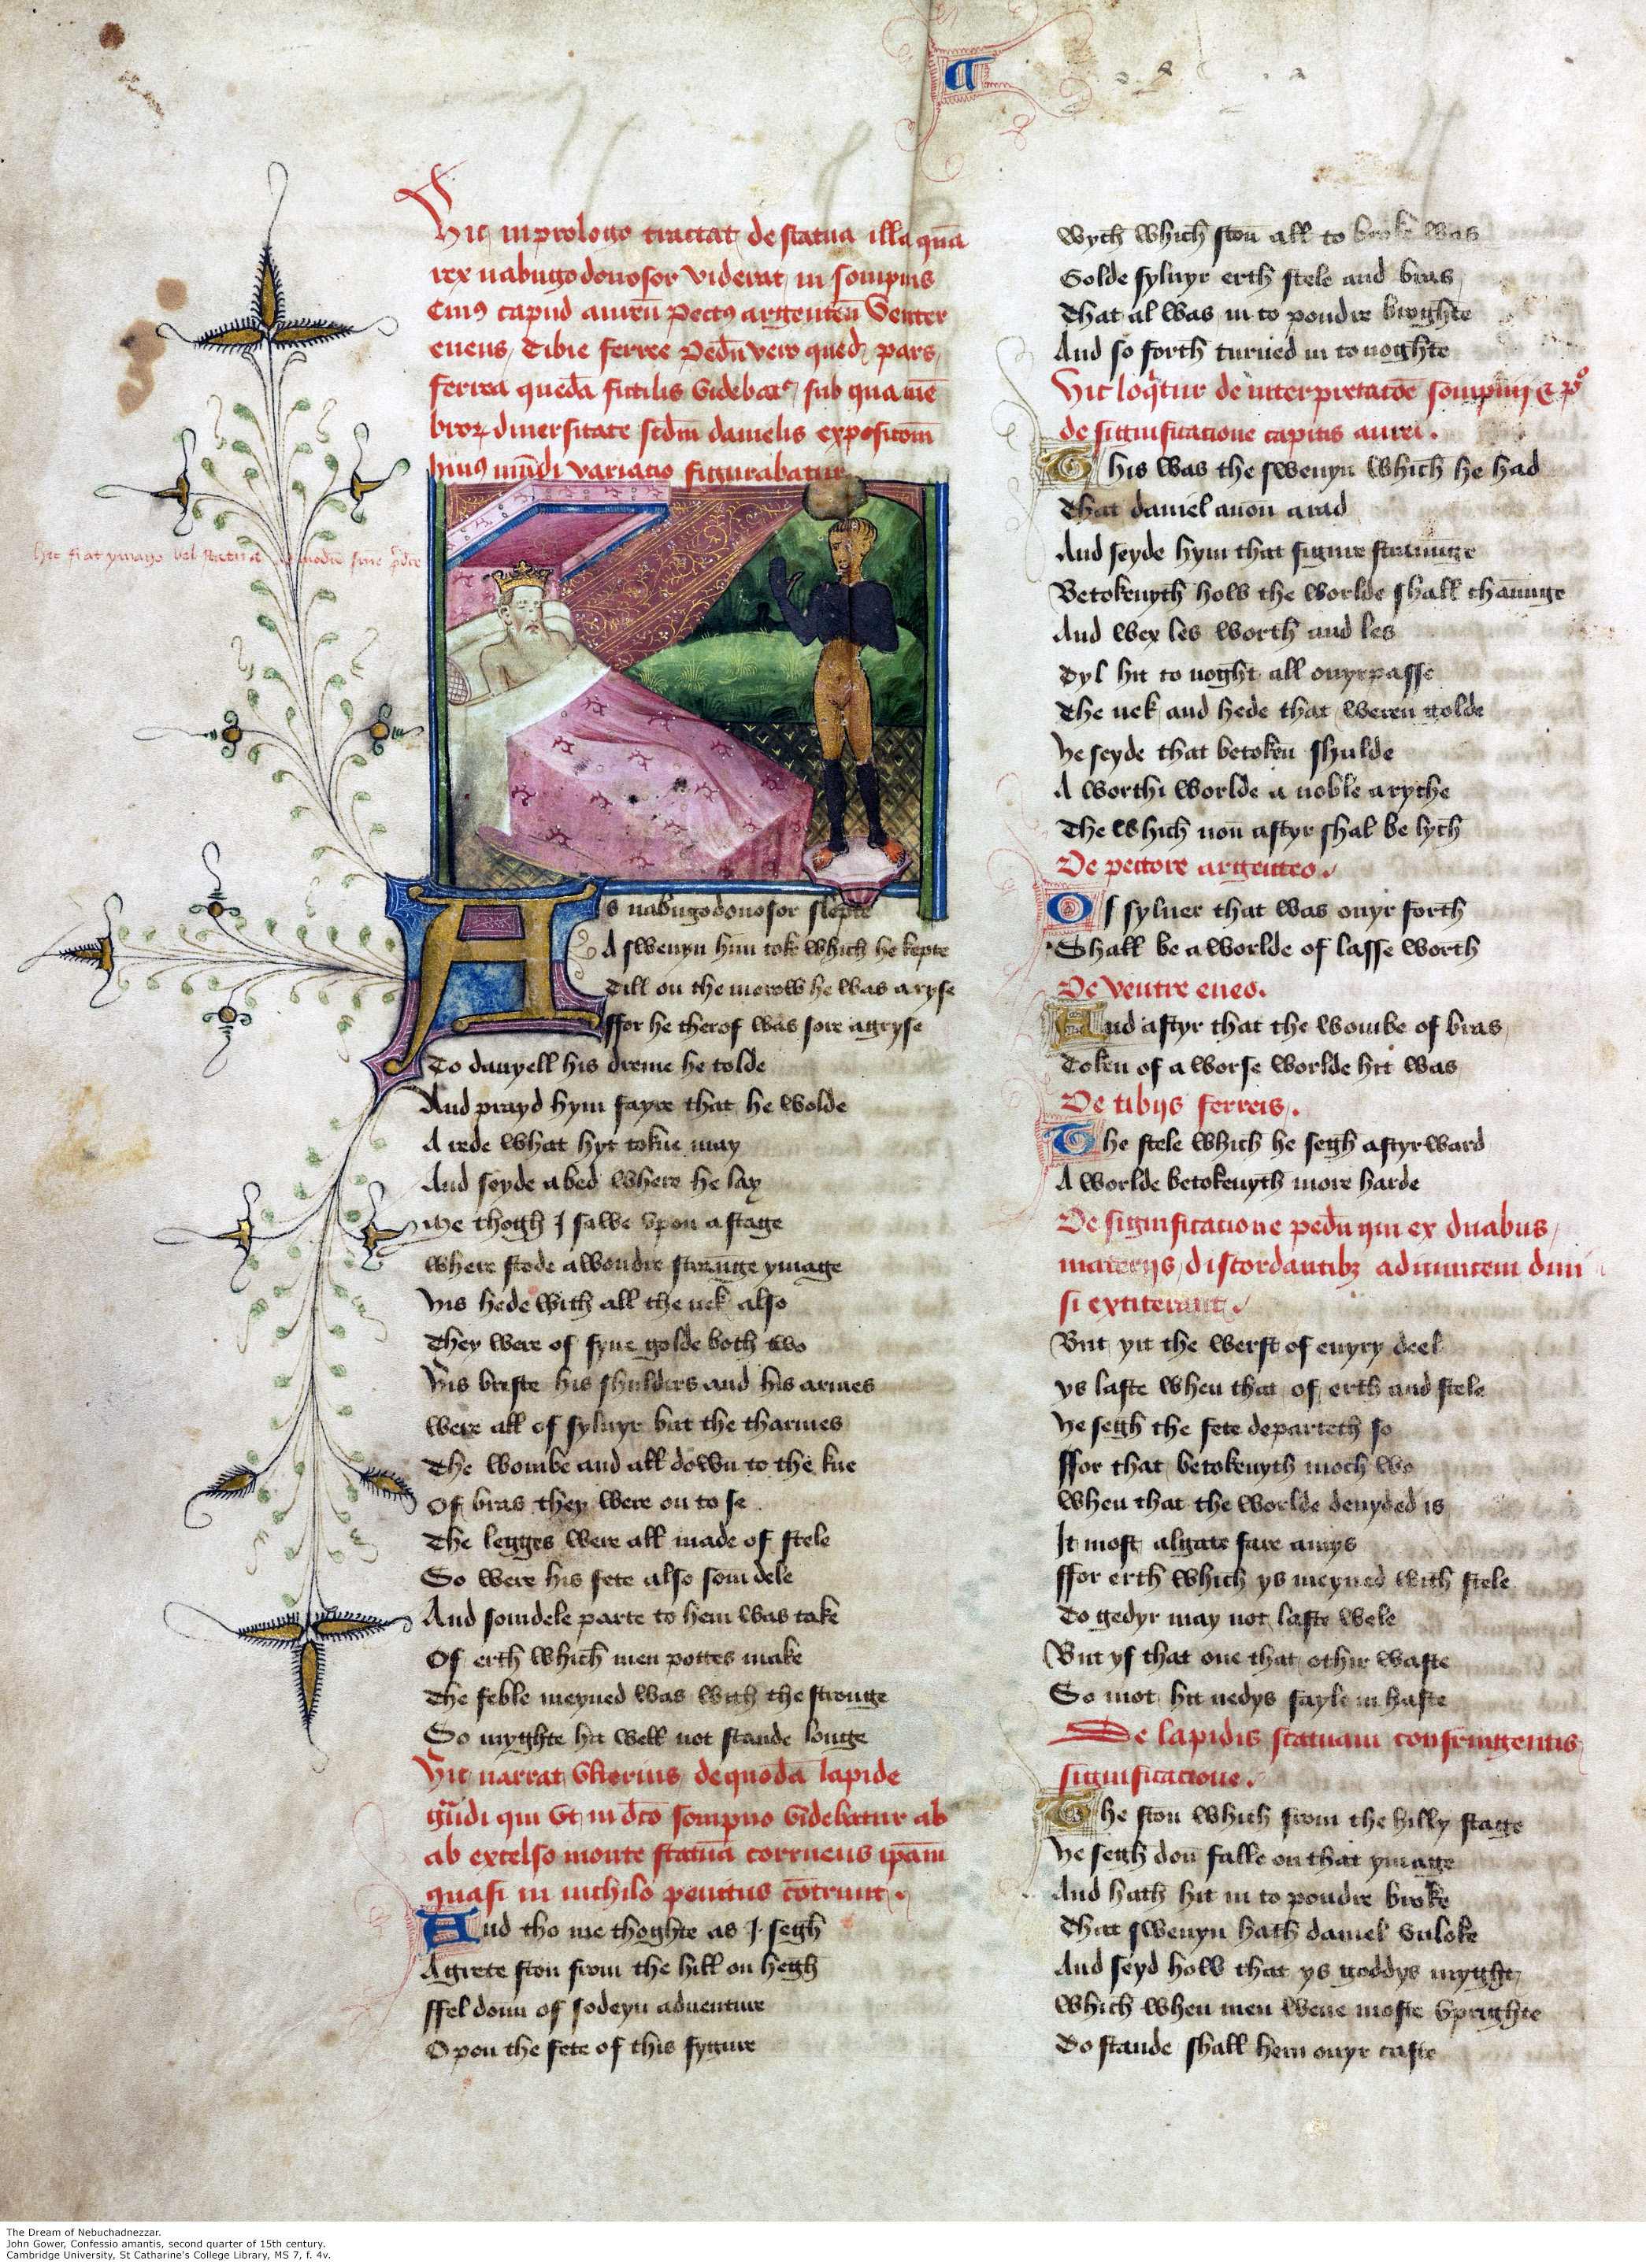 Hic in prologo tractat de statua illa quā
rex nabugodonosor viderat in sompnis
Cuiꝰ capud aureū Pectꝰ argenteū Venter
eneus Tibie ferree Pedū vero qued pars
ferrea quedā fictilis videbat̉ sub qua mē
broꝝ diuersitate scd̄m danielis exposicōm
huiꝰ mūdi variacio figurabatur
hic fiat ymago vel statua
As nabugodonosor slepte
A swenyn him tok which he kepte
Till on the morow he was aryse
ffor he therof was sore agryse
To danyell his dreme he tolde
And prayd hym fayre that he wolde
A rede what hyt tokne may
And seyde abed where he lay
Me thogh I sawe vpon a stage
where stode a wondre straunge ymage
His hede with all the nek also
They were of fyne golde both two
His briste his shuldres and his armes
were all of syluyr but the tharmes
The wombe and all down to the kne
Of bras they were on to se
The legges were all made of stele
So were his fete also somdele
And somdele parte to hem was take
Of erth which men pottes make
The feble meyned was with the stronge
So myghte hit well not stande longe
Hic narrat vlterius de quodā lapide
g̃ndi qui vt in dc̄o sompno videbatur ab
ab excelso monte statuā corruens ip̄am
quasi in nichilo penitus cōtriuit
And tho me thoghte as I segh
A grete ston from the hill on hegh
ffel doun of sodeyn aduenture
Opon the fete of this fygure
A
wych which ston all to broke was
Golde syluyr erth stele and bras
That al was in to poudre broghte
And so forth turned in to noghte
Hic loqͥtur de interpretacōe sompnij & pͦ
de significacione capitis aurei .
This was the swenyn which he had
That daniel anon arad
And seyde hym that figure straunge
Betokenyth how the worlde shall chaunge
And wex les worth and les
Tyl hit to noght all ouyrpasse
The nek and hede that weren golde
He seyde that betoken shulde
A worthi worlde a noble a ryche
The which non aftyr shal be lych
De pectore argenteo .
Of syluer that was ouyr forth
Shall be a worlde of lasse worth
De ventre eneo .
And aftyr that the wombe of bras
Token of a worse worlde hit was
De tibijs ferreis .
The stele which he segh aftyrward
A worlde betokenyth more harde
De significacione pedū qui ex duabus
materijs discordantibꝫ adinuicem diui
si extiterunt .
But yit the werst of euyry deel
ys laste when that of erth and stele
He segh the fete departeth so
ffor that betokenyth moch wo
when that the worlde deuyded is
It most algate fare amys
ffor erth which ys meyned with stele
To gedyr may not laste wele
But yf that one that othir waste
So mot hit nedys fayle in haste
De lapidis statuam confringentis
significacione .
The ston which from the hilly stage
He segh doū falle on that ymage
And hath hit in to poudre broke
That swenyn hath daniel vnloke
And seyd how that ys goddys myght
which when men wene moste vprighte
To stande shall hem ouyr caste
The Dream of Nebuchadnezzar.
John Gower, Confessio amantis, second quarter of 15th century.
Cambridge University, St Catharine's College Library, MS 7, f. 4v.